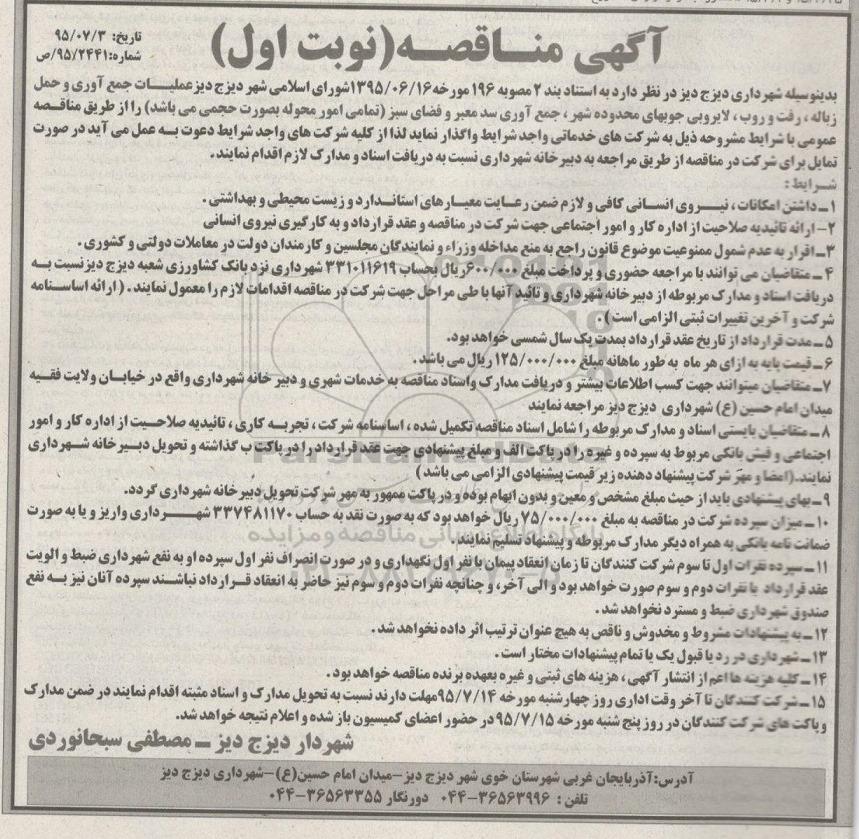 آگهی مناقصه(نوبت اول)
تاریخ: ۹۵/۰۷/۳
شماره:۹۵/۲۴۴۱/ص
بدینوسیله شهرداری دیزج دیز در نظر دارد به استناد بند ۲ مصوبه ۱۹۶ مورخه ۱۳۹۵/۰۶/۱۶شورای اسلامی شهر دیزج دیزعملیـات جمع آوری و حمل
زباله ، رفت و روب ، لایروبی جوبهای محدوده شهر ، جمع آوری سد معبر و فضای سبز (تمامی امور محوله بصورت حجمی می باشد) را از طریق مناقـصه
عمومی با شرایط مشروحه ذیل به شرکت های خدماتی واجد شرایط واگذار نماید لذا از کلیه شرکت های واجد شرایط دعوت بـه عمل می آید در صورت
تمایل برای شرکت در مناقصه از طریق مراجعه به دبیر خانه شهرداری نسبت به دریافت اسناد و مدارک لازم اقدام نمایند.
شـرایط :
۱ـ داشتن امکانات ، نیـروی انسـانی کافی و لازم ضمن رعـایت معیـارهای استانـدارد و زیست محیطی و بهداشتی .
۲- ارائه تائیدیه صلاحیت از اداره کار و امور اجتماعی جهت شرکت در مناقصه و عقد قرارداد و به کارگیری نیروی انسانی
۳ـ اقرار به عدم شمول ممنوعیت موضوع قانون راجع به منع مداخله وزراء و نمایندگان مجلسین و کارمندان دولت در معاملات دولتی و کشوری .
۴ ـ متقاضیان می توانند با مراجعه حضوری و پرداخت مبلغ ۶۰۰/۰۰۰ریال بحساب ۳۳۱۰۱۱۶۱۹ شهرداری نزد بانک کشاورزی شعبه دیزج دیزنسبت بـه
دریافت اسناد و مدارک مربوطه از دبیر خانه شهرداری و تائید آنها با طی مراحل جهت شرکت در مناقصه اقدامات لازم را معمول نمایند . ( ارائه اساسـنامه
شرکت و آخرین تغییرات ثبتی الزامی است ) .
۵ ـ مدت قرارداد از تاریخ عقد قرارداد بمدت یک سال شمسی خواهد بود.
۶ ـ قیمت پایه به ازای هر ماه به طور ماهانه مبلغ ۱۲۵/۰۰۰/۰۰۰ ریال می باشد .
۷ـ متقاضیان میتوانند جهت کسب اطلاعات بیشتر و دریافت مدارک واسناد مناقصه به خدمات شهری و دبیر خانه شهرداری واقع در خیابـان ولایت فقـیه
میدان امام حسین (ع) شهرداری دیزج دیز مراجعه نمایند
۸ ـ متقاضیان بایستی اسناد و مدارک مربوطه را شامل اسناد مناقصه تکمیل شده ، اساسنامه شرکت ، تجربـه کاری ، تائیدیه صلاحـیت از اداره کار و امور
اجتماعی و فیش بانکی مربوط به سپرده و غیره را در پاکت الف و مبلغ پیشنهادی جهت عقد قرارداد را در پاکت ب گذاشته و تحویل دبـیر خانه شهـرداری
نمایند.(امضا و مهر شرکت پیشنهاد دهنده زیر قیمت پیشنهادی الزامی می باشد )
۹ـ بهای پیشنهادی باید از حیث مبلغ مشخص و معین و بدون ابهام بوده و در پاکت ممهور به مهر شرکت تحویل دبیر خانه شهرداری گردد.
۱۰ ـ میزان سپرده شرکت در مناقصه به مبلغ ۷۵/۰۰۰/۰۰۰ ریال خواهد بود که به صورت نقد به حساب ۳۳۷۴۸۱۱۷۰ شهـرداری واریز و یا به صورت
ضمانت نامه بانکی به همراه دیگر مدارک مربوطه و پیشنهاد تسلیم نمایند.
۱۱ ـ سپرده نفرات اول تا سوم شرکت کنندگان تا زمان انعقاد پیمان با نفر اول نگهداری و در صورت انصراف نفر اول سپرده او به نفع شهرداری ضبط و الویت
عقد قرارداد با نفرات دوم و سوم صورت خواهد بود و الی آخر ، و چنانچه نفرات دوم و سوم نیز حاضر به انعقاد قـرارداد نباشـند سپرده آنان نیز بـه نفع
صندوق شهرداری ضبط و مسترد نخواهد شد .
۱۲ ـ به پیشنهادات مشروط و مخدوش و ناقص به هیچ عنوان ترتیب اثر داده نخواهد شد .
۱۳ ـ شهرداری در رد یا قبول یک یا تمام پیشنهادات مختار است .
۱۴ ـ کلیه هزینه ها اعم از انتشار آگهی ، هزینه های ثبتی و غیره بعهده برنده مناقصه خواهد بود .
۱۵ ـ شرکت کنندگان تا آخر وقت اداری روز چهارشنبه مورخه ۹۵/۷/۱۴مهلت دارند نسبت به تحویل مدارک و اسناد مثبته اقدام نمایند در ضمن مدارک
و پاکت های شرکت کنندگان در روز پنج شنبه مورخه ۹۵/۷/۱۵در حضور اعضای کمیسیون باز شده و اعلام نتیجه خواهد شد.
شهردار دیزج دیز ـ مصطفی سبحانوردی
آدرس:آذربایجان غربی شهرستان خوی شهر دیزج دیز-میدان امام حسین(ع)-شهرداری دیزج دیز
تلفن : ۳۶۵۶۳۹۹۶-۰۴۴ دورنگار ۳۶۵۶۳۳۵۵-۰۴۴